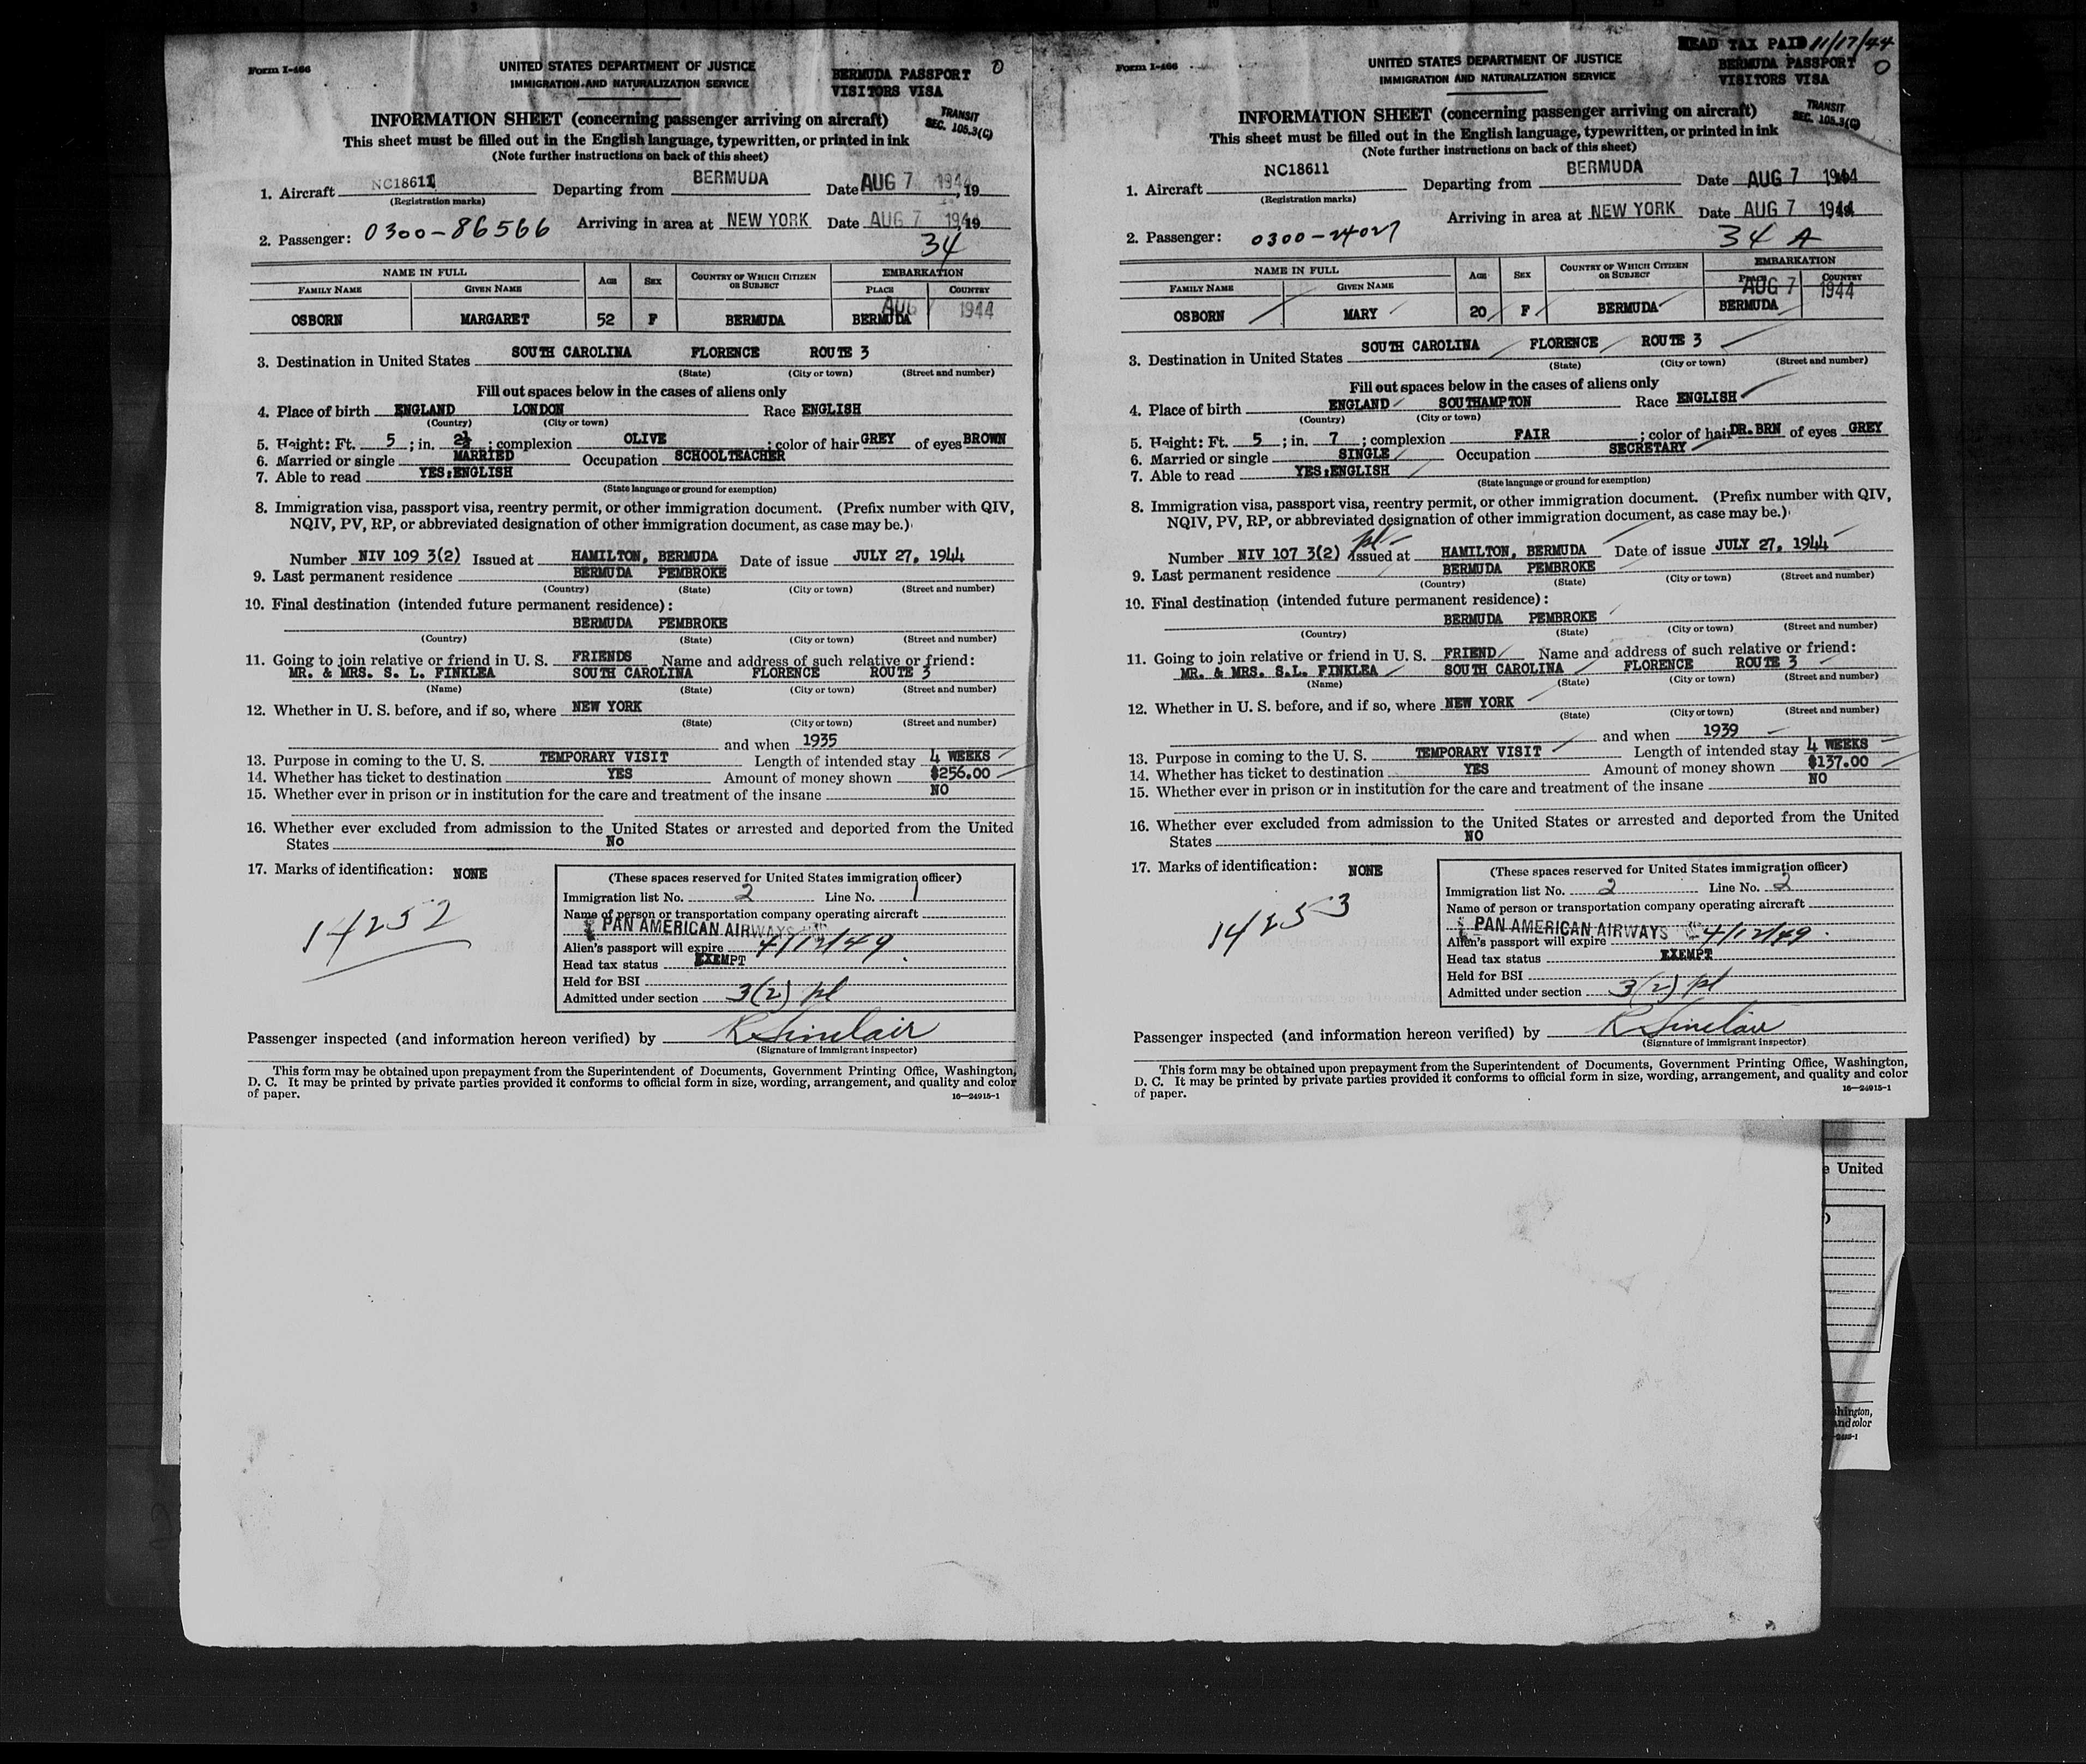 Form I-466
UNITED STATES DEPARTMENT OF JUSTICE
IMMIGRATION AND NATURALIZATION SERVICE
BERMUDA PASSPORT
VISITORS VISA
0
TRANSIT
SEC. 105.3(C)
INFORMATION SHEET (concerning passenger arriving on aircraft)
This sheet must be filled out in the English language, typewritten, or printed in ink
(Note further instructions on back of this sheet)
1. Aircraft NC18611 Departing from BERMUDA Date AUG 7 1944, 19
(Registration marks)
Arriving in area at NEW YORK Date AUG 7 1944 19
2. Passenger: 0300-86566
34
NAME IN FULL
FAMILY NAME GIVEN NAME AGE SEX COUNTRY OF WHICH CITIZEN OR SUBJECT EMBARKATION PLACE COUNTRY
AUG 7 1944
OSBORN MARGARET 52 F BERMUDA BERMUDA
3. Destination in United States SOUTH CAROLINA FLORENCE ROUTE 3
(State) (City or town) (Street and number)
Fill out spaces below in the cases of aliens only
4. Place of birth ENGLAND LONDON Race ENGLISH
(Country) (City or town)
5. Height: Ft. 5; in. 2½; complexion OLIVE; color of hair GREY of eyes BROWN
6. Married or single MARRIED Occupation SCHOOLTEACHER
7. Able to read YES:ENGLISH
(State language or ground for exemption)
8. Immigration visa, passport visa, reentry permit, or other immigration document. (Prefix number with QIV,
NQIV, PV, RP, or abbreviated designation of other immigration document, as case may be.)
Number NIV 109 3(2) Issued at HAMILTON, BERMUDA Date of issue JULY 27, 1944
9. Last permanent residence BERMUDA PEMBROKE
(Country) (State) (City or town) (Street and number)
10. Final destination (intended future permanent residence):
BERMUDA PEMBROKE
(Country) (State) (City or town) (Street and number)
11. Going to join relative or friend in U. S. FRIENDS Name and address of such relative or friend:
MR. & MRS. S. L. FINKLEA SOUTH CAROLINA FLORENCE ROUTE 3
(Name) (State) (City or town) (Street and number)
12. Whether in U. S. before, and if so, where NEW YORK
(State) (City or town) (Street and number)
and when 1935
13. Purpose in coming to the U. S. TEMPORARY VISIT Length of intended stay 4 WEEKS
14. Whether has ticket to destination YES Amount of money shown $256.00
15. Whether ever in prison or in institution for the care and treatment of the insane NO
16. Whether ever excluded from admission to the United States or arrested and deported from the United
States No
17. Marks of identification: NONE
14252
(These spaces reserved for United States immigration officer)
Immigration list No. 2 Line No. 1
Name of person or transportation company operating aircraft
PAN AMERICAN AIRWAYS
Alien's passport will expire 4/12/49
Head tax status EXEMPT
Held for BSI
Admitted under section 3(2) pl
Passenger inspected (and information hereon verified) by R Sinclair
(Signature of immigrant inspector)
This form may be obtained upon prepayment from the Superintendent of Documents, Government Printing Office, Washington,
D. C. It may be printed by private parties provided it conforms to official form in size, wording, arrangement, and quality and color
of paper.
16—24915-1
Form I-466
UNITED STATES DEPARTMENT OF JUSTICE
IMMIGRATION AND NATURALIZATION SERVICE
HEAD TAX PAID 11/17/44
BERMUDA PASSPORT
VISITORS VISA
0
TRANSIT
SEC. 105.3(C)
INFORMATION SHEET (concerning passenger arriving on aircraft)
This sheet must be filled out in the English language, typewritten, or printed in ink
(Note further instructions on back of this sheet)
1. Aircraft NC18611 Departing from BERMUDA Date AUG 7 1944
(Registration marks)
Arriving in area at NEW YORK Date AUG 7 1944
2. Passenger: 0300-24027
34 A
NAME IN FULL
FAMILY NAME GIVEN NAME AGE SEX COUNTRY OF WHICH CITIZEN OR SUBJECT EMBARKATION PLACE COUNTRY
AUG 7 1944
OSBORN MARY 20 F BERMUDA BERMUDA
3. Destination in United States SOUTH CAROLINA FLORENCE ROUTE 3
(State) (City or town) (Street and number)
Fill out spaces below in the cases of aliens only
4. Place of birth ENGLAND SOUTHAMPTON Race ENGLISH
(Country) (City or town)
5. Height: Ft. 5; in. 7; complexion FAIR; color of hair DR. BRN of eyes GREY
6. Married or single SINGLE Occupation SECRETARY
7. Able to read YES:ENGLISH
(State language or ground for exemption)
8. Immigration visa, passport visa, reentry permit, or other immigration document. (Prefix number with QIV,
NQIV, PV, RP, or abbreviated designation of other immigration document, as case may be.)
pl
Number NIV 107 3(2) Issued at HAMILTON, BERMUDA Date of issue JULY 27, 1944
9. Last permanent residence BERMUDA PEMBROKE
(Country) (State) (City or town) (Street and number)
10. Final destination (intended future permanent residence):
BERMUDA PEMBROKE
(Country) (State) (City or town) (Street and number)
11. Going to join relative or friend in U. S. FRIEND Name and address of such relative or friend:
MR. & MRS. S.L. FINKLEA SOUTH CAROLINA FLORENCE ROUTE 3
(Name) (State) (City or town) (Street and number)
12. Whether in U. S. before, and if so, where NEW YORK
(State) (City or town) (Street and number)
and when 1939
13. Purpose in coming to the U. S. TEMPORARY VISIT Length of intended stay 4 WEEKS
14. Whether has ticket to destination YES Amount of money shown $137.00
15. Whether ever in prison or in institution for the care and treatment of the insane NO
16. Whether ever excluded from admission to the United States or arrested and deported from the United
States NO
17. Marks of identification: NONE
14253
(These spaces reserved for United States immigration officer)
Immigration list No. 2 Line No. 2
Name of person or transportation company operating aircraft
PAN AMERICAN AIRWAYS
Alien's passport will expire 4/12/49
Head tax status EXEMPT
Held for BSI
Admitted under section 3(2) pl
Passenger inspected (and information hereon verified) by R Sinclair
(Signature of immigrant inspector)
This form may be obtained upon prepayment from the Superintendent of Documents, Government Printing Office, Washington,
D. C. It may be printed by private parties provided it conforms to official form in size, wording, arrangement, and quality and color
of paper.
16—24915-1
United